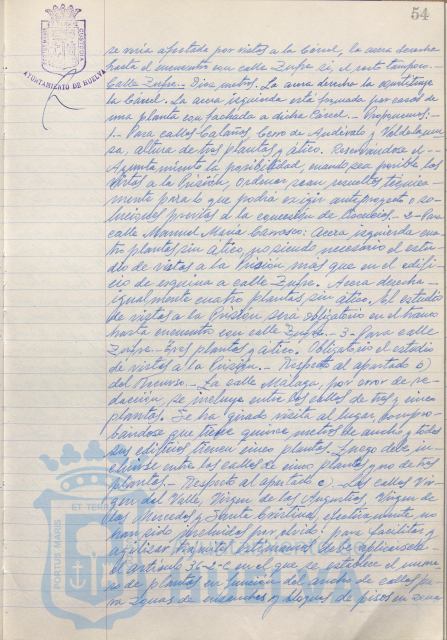 54
AYUNTAMIENTO DE HUELVA
se vería afectada por vistas a la Cárcel, la acera derecha
hasta el encuentro con calle Zufre si, el resto tampoco.-
Calle Zufre.- Diez metros. La acera derecha la constituye
la Cárcel. La acera izquierda está formada por casas de
una planta con fachada a dicha Cárcel.- Proponemos:-
1.- Para calles Cabezos Cerro de Andévalo y Valdelagrana
sa, altura de tres plantas y ático. Reservándose el
Ayuntamiento la posibilidad, cuando sea posible las
vistas a la Prisión, ordenar sean resueltas técnica-
mente para lo que podrá exigir anteproyecto o so-
luciones previas a la concesión de licencias.- 2.- Para
calle Manuel María Carrasco: Acera izquierda cua-
tro plantas sin ático, no siendo necesario el estu-
dio de vistas a la Prisión más que en el edifi-
cio de esquina a calle Zufre. Acera derecha-
igualmente cuatro plantas, sin ático. El estudio
de vistas a la Prisión será obligatorio en el tramo
hasta encuentro con calle Zufre.- 3.- Para calle
Zufre.- Tres plantas y ático. Obligatorio el estudio
de vistas a la Prisión.- Respecto al apartado b)
del Recurso.- La calle Málaga, por error de re-
dacción, se incluye entre las calles de tres y cinco
plantas. Se ha girado visita al lugar, compro-
bándose que tiene quince metros de ancho y todos
sus edificios tienen cinco plantas. Luego debe in-
cluirse entre las calles de cinco plantas y no de tres
plantas.- Respecto al apartado c).- Las calles Vir-
gen del Valle, Virgen de las Angustias, Virgen de
las Mercedes y Santa Cristina, efectivamente no
han sido incluidas por olvido. Para facilitar y
agilizar trámites debe aplicársele
el artículo 36-2-C en el que se establece el núme-
ro de plantas en función del ancho de calles pa-
ra zonas de ensanches y bloques de pisos en zona
PORTUS MARIS ET TERRAE